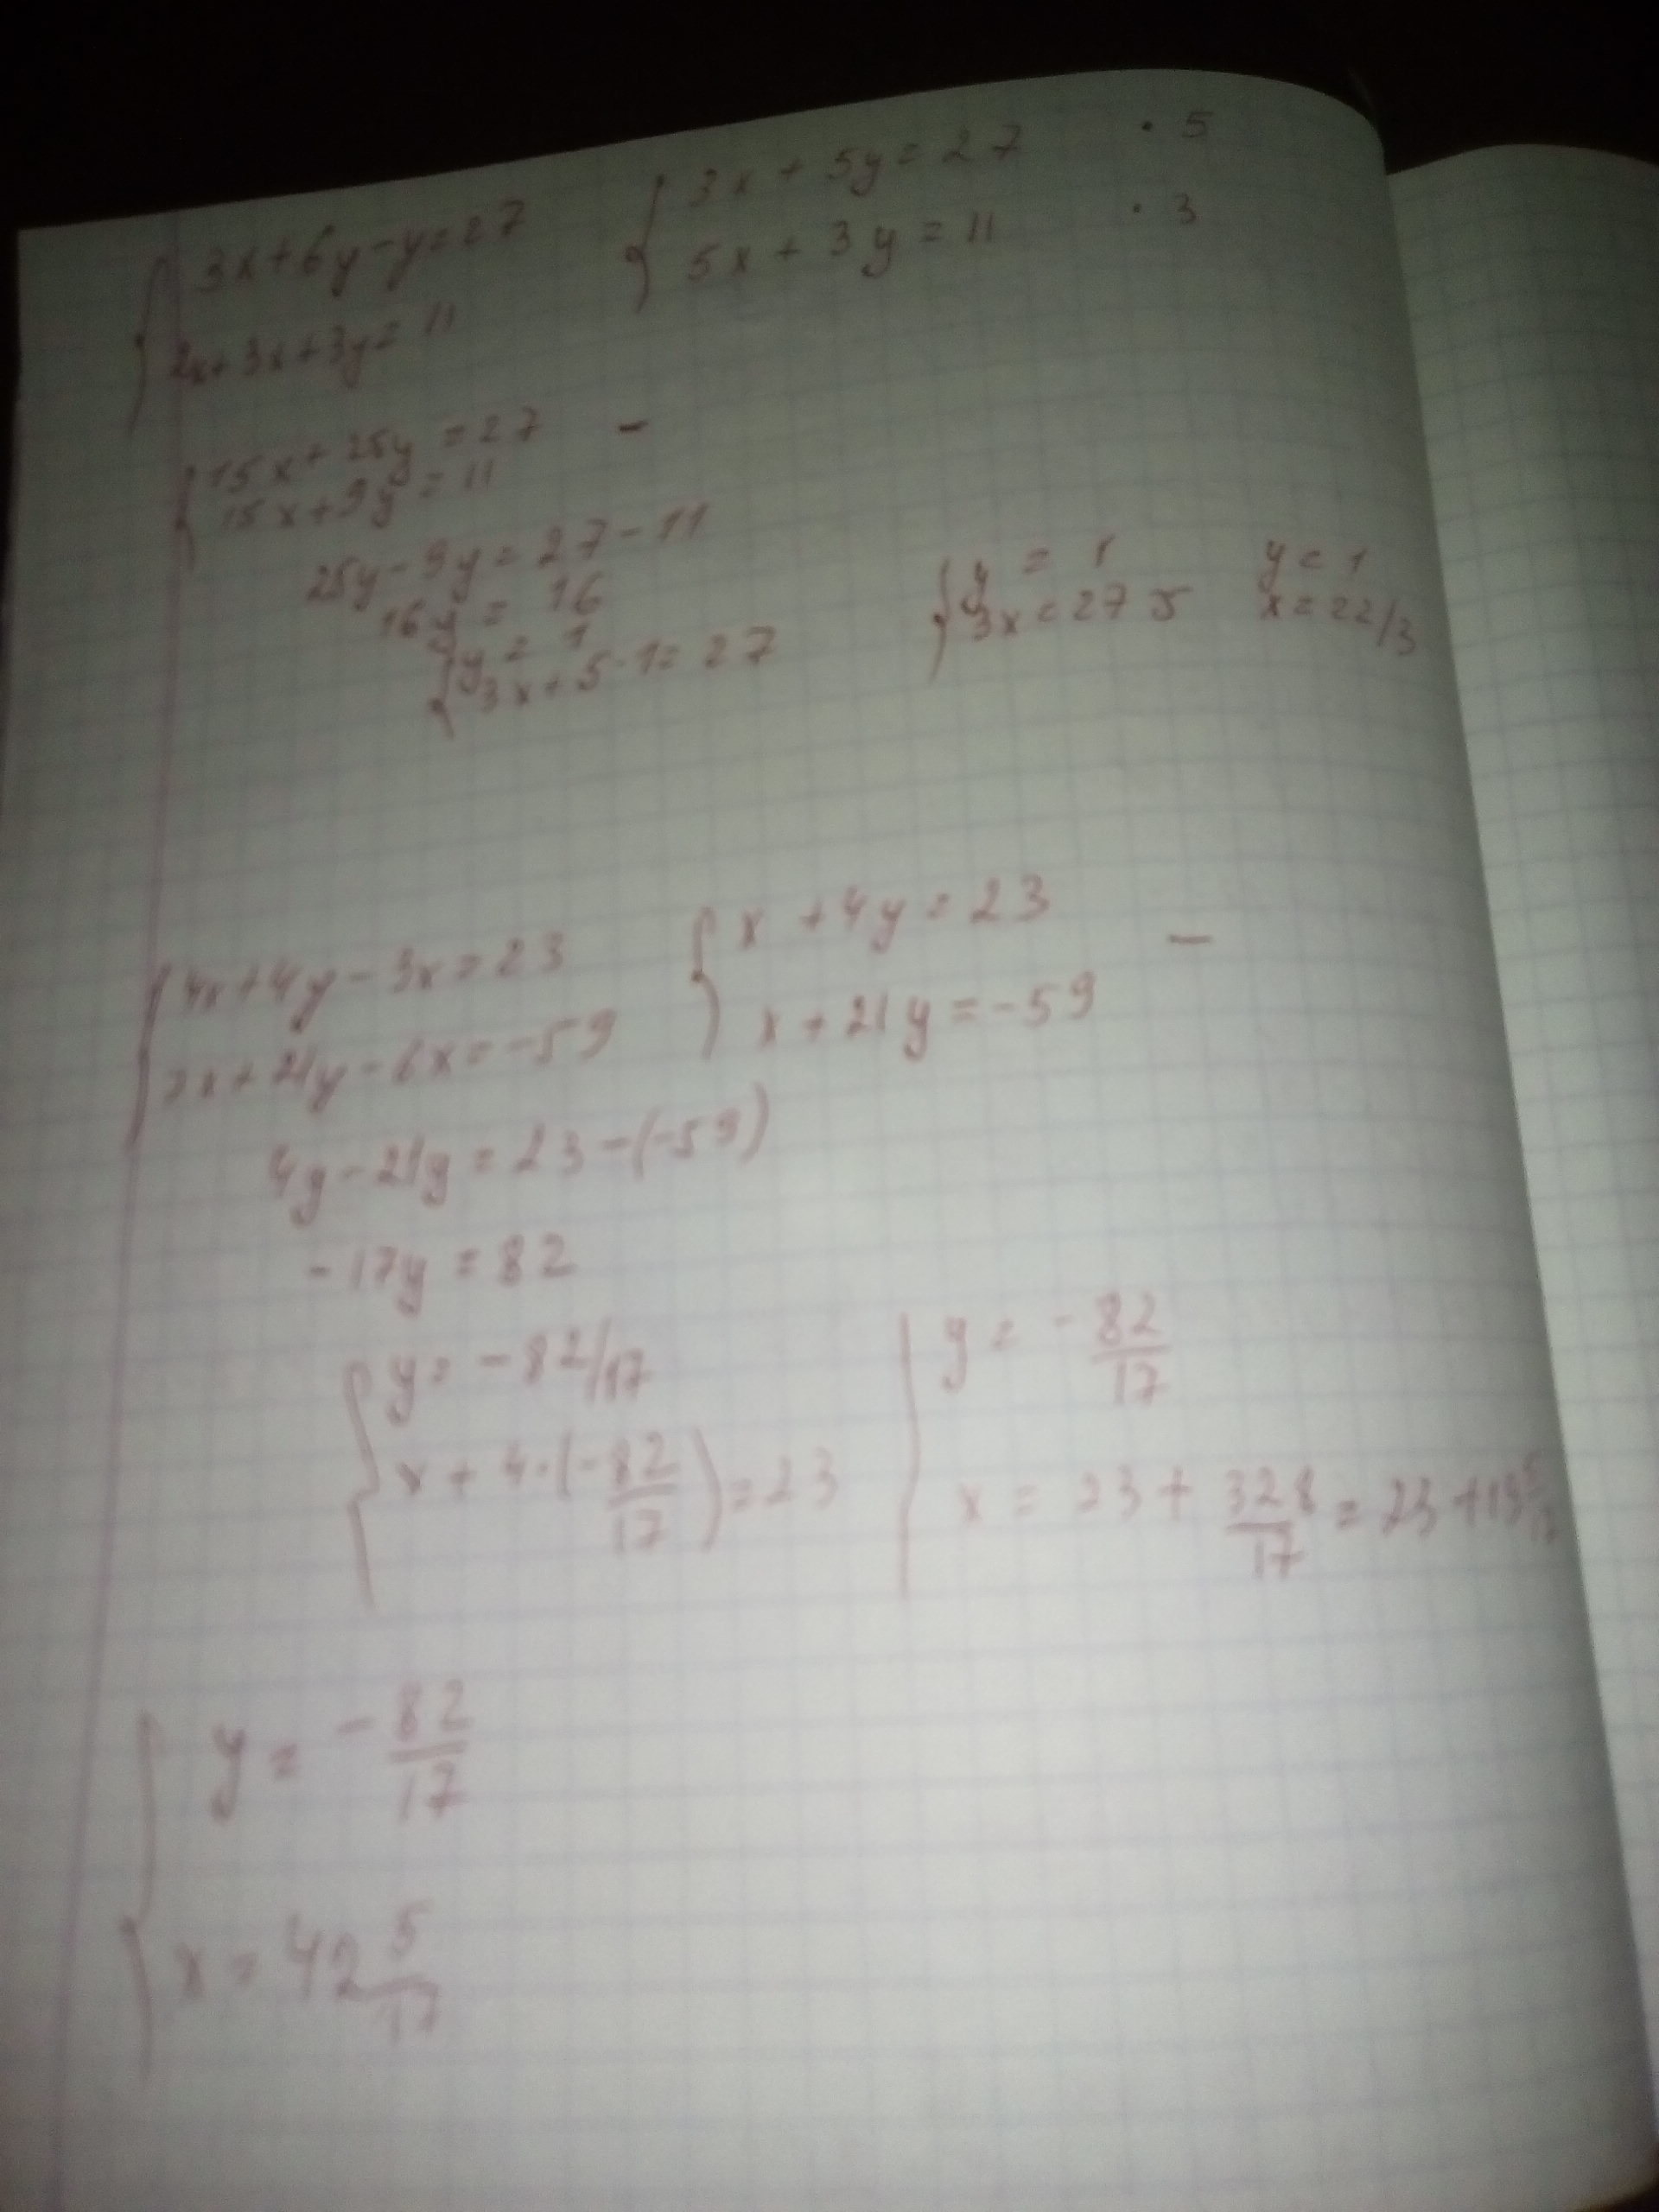 3x+6y-y=27
2x+3x+3y=11
3x+5y=27 · 5
5x+3y=11 · 3
15x+25y=27 -
15x+9y=11
25y-9y=27-11
16y=16
y=1
3x+5·1=27
y=1
3x=27 5
y=1
x=22/3
4x+4y-3x=23
7x+21y-6x=-59
x+4y=23 -
x+21y=-59
4y-21y=23-(-59)
-17y=82
y=-82/17
x+4·(-82/17)=23
y=-82/17
x=23+328/17=23+19 5/17
y=-82/17
x=42 5/17